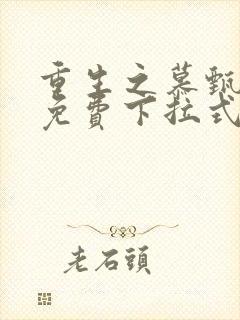 重生之慕甄
免費下拉式
老石頭